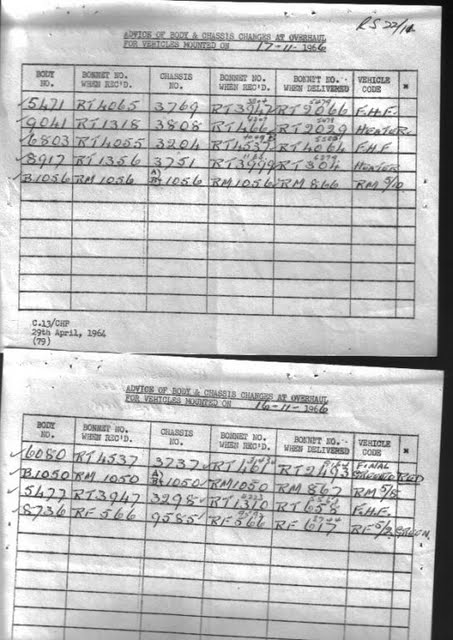 RS 22/11
ADVICE OF BODY & CHASSIS CHANGES AT OVERHAUL
FOR VEHICLES MOUNTED ON 17-11-1966
BODY NO. BONNET NO. WHEN REC'D. CHASSIS NO. BONNET NO. WHEN REC'D. BONNET NO. WHEN DELIVERED VEHICLE CODE *
5471 RT4065 3769 RT3947 RT2066 F.H.F.
9041 RT1318 3808 RT1466 RT2029 HEATER
6803 RT4055 3204 RT4537 RT4064 F.H.F
8917 RT1356 3751 RT3999 RT304 HEATER
B1056 RM1056 1056 RM1056 RM866 RM 5/10
C.13/CHP
29th April, 1964
(79)
ADVICE OF BODY & CHASSIS CHANGES AT OVERHAUL
FOR VEHICLES MOUNTED ON 16-11-1966
BODY NO. BONNET NO. WHEN REC'D. CHASSIS NO. BONNET NO. WHEN REC'D. BONNET NO. WHEN DELIVERED VEHICLE CODE *
6080 RT4537 3737 RT461 RT2493 FINAL RED
B1050 RM1050 1050 RM1050 RM867 RM 5/8
5477 RT3947 3298 RT1310 RT658 F.H.F.
8736 RF566 9585 RF566 RF617 RF 5/2 GREEN